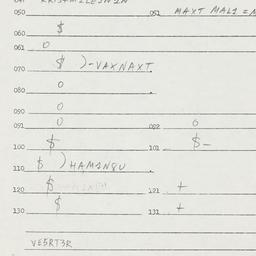 050 051 MAXT MAL1 =
060 $
061 0
070 $ )-VAXNAXT.
080 0
090 0
091 0 092 0
100 $ 101 $-
110 $ ) HAM1N8U
120 $ 121 +
130 $ 131 +
VE5RT3R